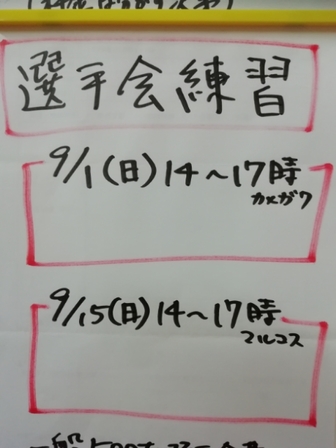 選手会練習
9/1(日)14~17時
カメガワ
9/15(日)14~17時
マルコス